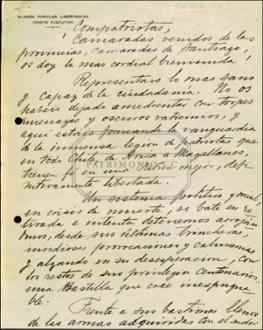 ALIANZA POPULAR LIBERTADORA
COMITE EJECUTIVO
¡Compatriotas,
Camaradas venidos de las
provincias, camaradas de Santiago,
os doy la mas cordial bienvenida!
Representais lo mas sano
y capaz de la ciudadanía. No os
habéis dejado amedrentar con torpes
amenazas y oscuros vaticinios, y
aquí estáis formando la vanguardia
de la inmensa legion de patriotas que
en todo Chile de Arica a Magallanes,
tienen fe en una Patria mejor, defi-
nitivamente libertada.
Un sistema político y social,
en crisis de muerte, se bate en re-
tirada e intenta detenernos arroján
donos, desde sus últimas trincheras,
insidiosas provocaciones y calumnias
y alzando en su desesperacion, con
los restos de sus privilegios centenarios,
una Bastilla que cree inexpugna-
ble.
Frente a sus bastiones llenos
de las armas adquiridas con el sudor